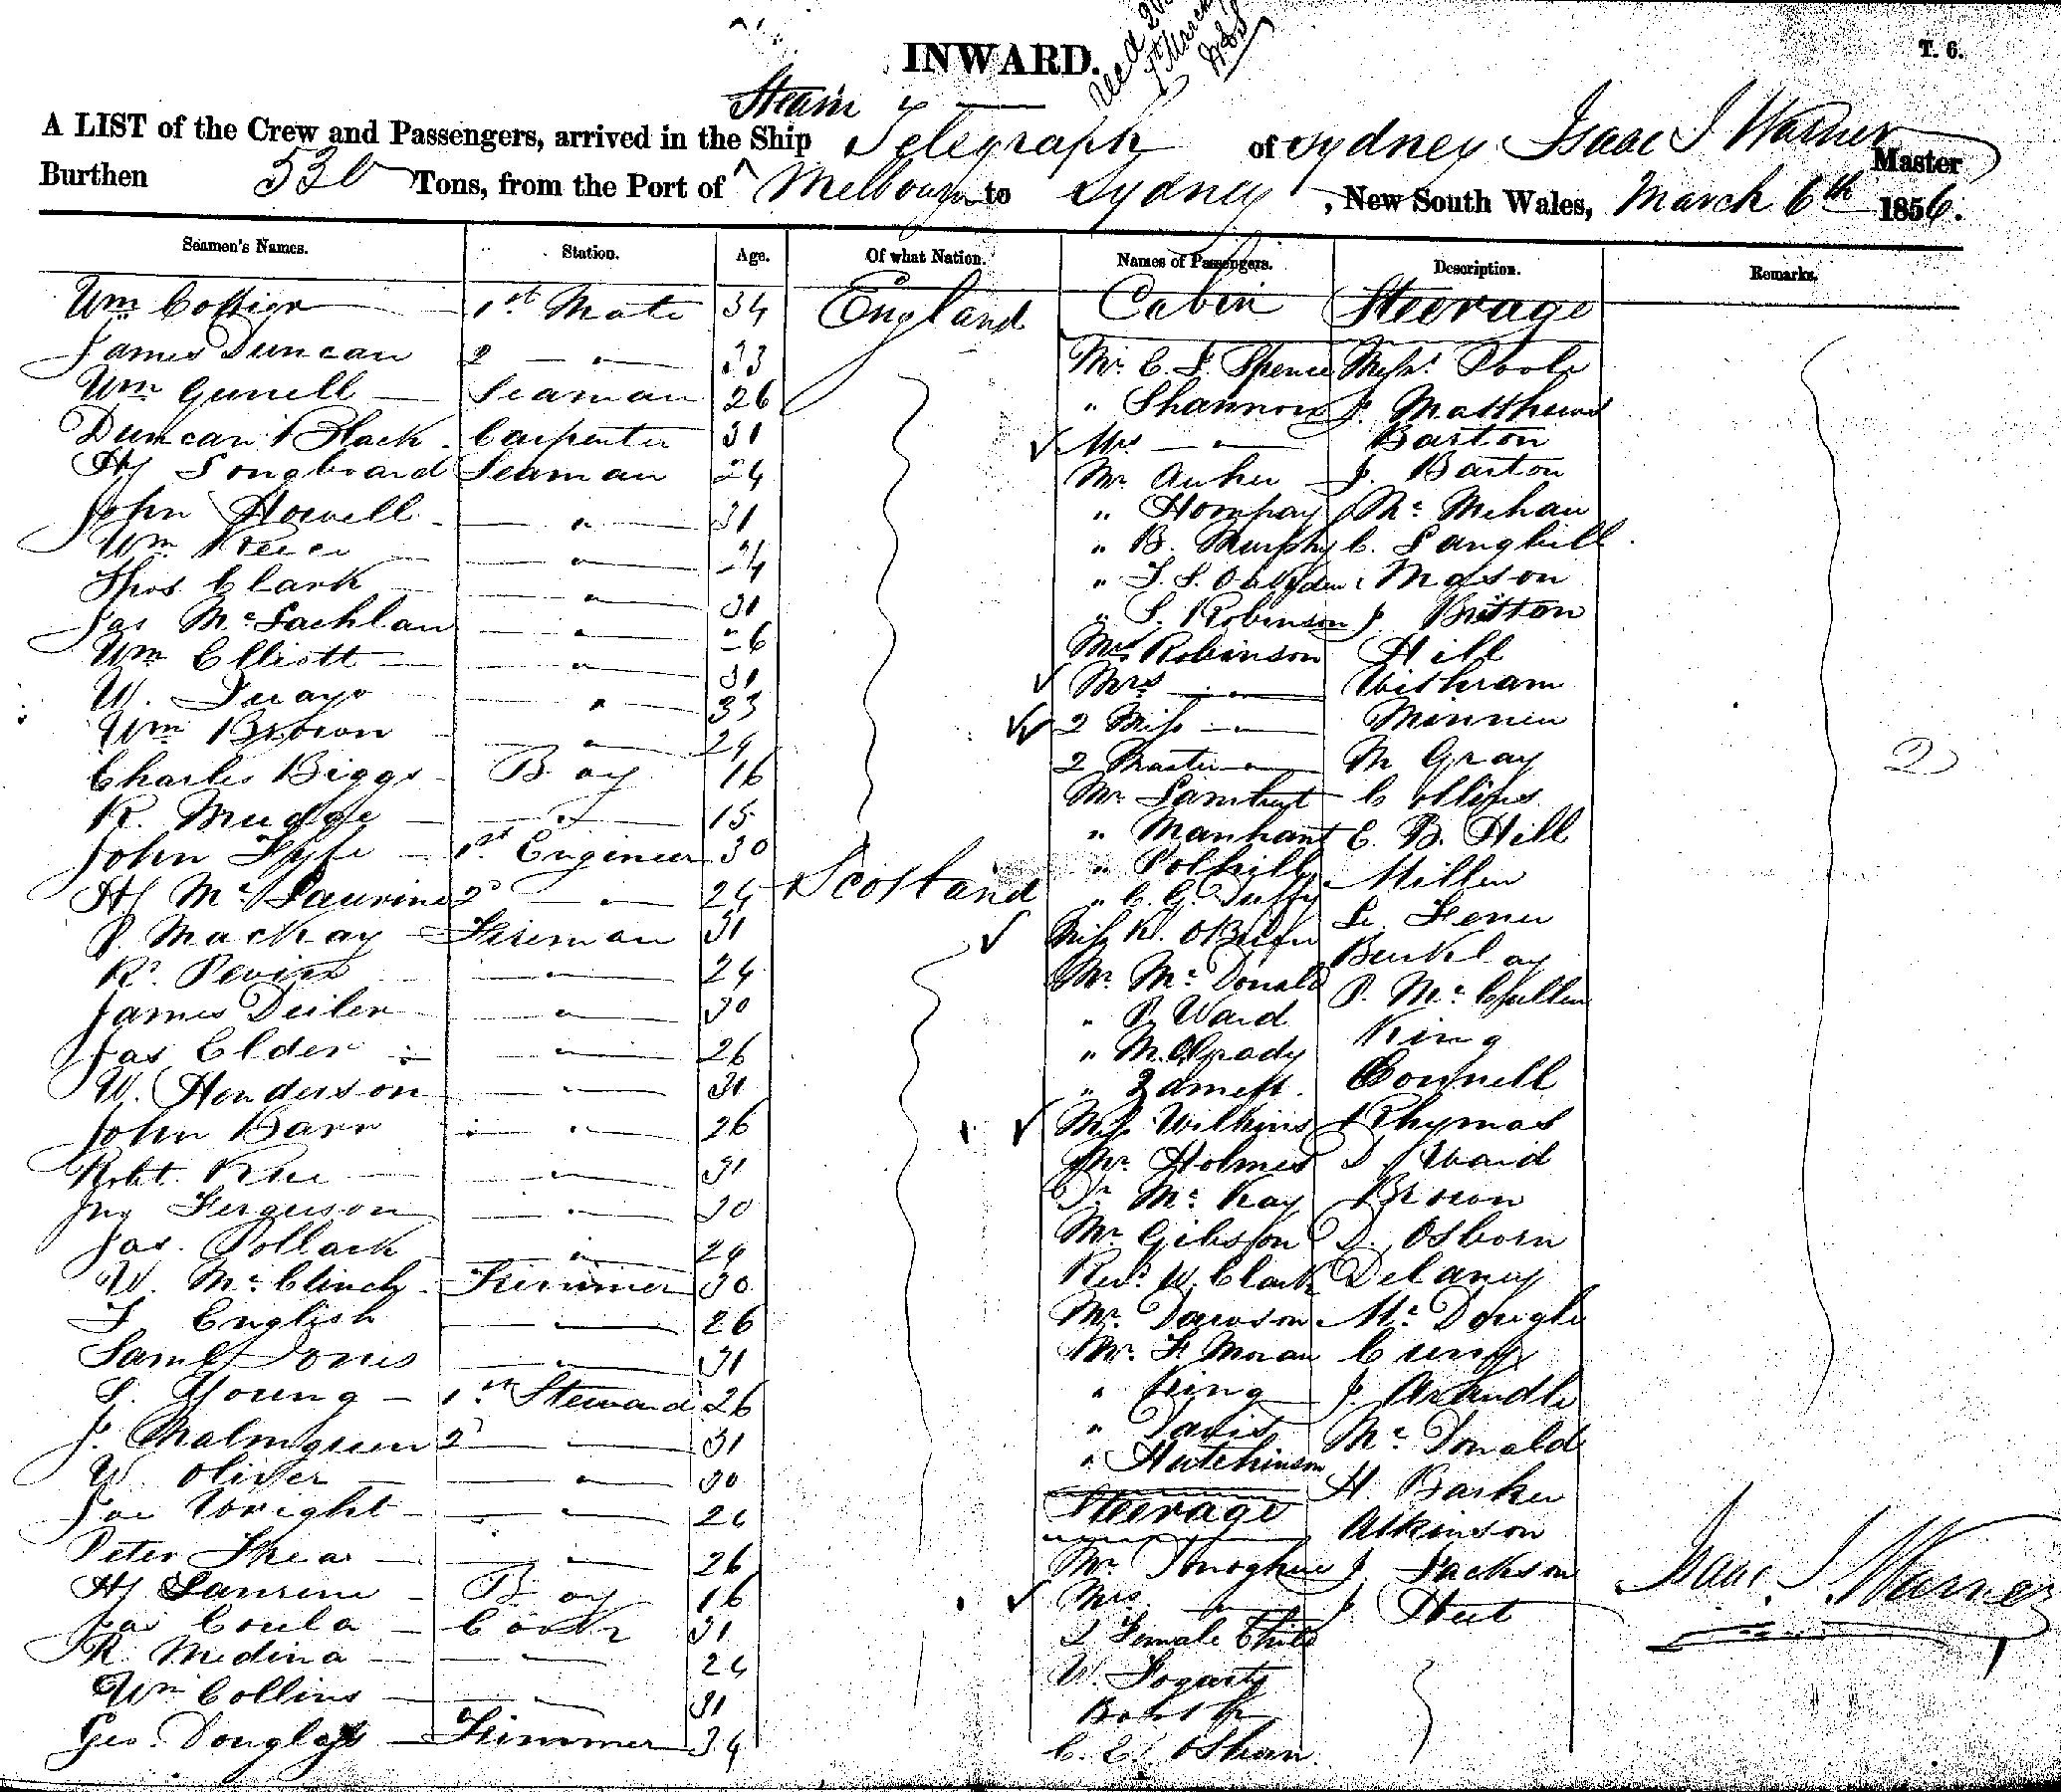 INWARD.
T. 6.
Steam
A LIST of the Crew and Passengers, arrived in the Ship Telegraph of Sydney Isaac J Warner Master
Burthen 530 Tons, from the Port of Melbourn to Sydney, New South Wales, March 6th 1856.
Seamen's Names. Station. Age. Of what Nation. Names of Passengers. Description. Remarks.
Wm 1st Mate 34 England Cabin Steerage
James Duncan 2 — " — 33 Mr. C. S. Spence Messrs. Poole
Wm Gunell Seaman 26 " Shannon J. Matthews
Duncan Black Carpenter 31 Mrs — " — Barton
Hy Longboard Seaman 24 Mr J. Barton
John Howell — " — 31 " Mc Mehan
Wm — " — 24 " B. Murphy C. Langhill
Thos Clark — " — 31 " Mason
Jas McLachlan — " — 26 " S. Robinson J. Britton
Wm Elliott — " — 31 Mr Robinson Hill
W. Quayo — " — 33 Mrs — " — Withram
Wm Brown — " — 24 2 Miss — " — Minniu
Charles Biggs Boy 16 2 Master — " — M Gray
R. Mudge — " — 15 Mr Lambert Collins
John Fyfe 1st Engineer 30 " Manhant C. B. Hill
Hy McLaurine 2d — " — 24 Scotland " Polhill Millen
P. Mackay Fireman 31 " C. G. Duffy L. Fenu
Rt. — " — 24 Miss K. OBrien Buckley
James Deiler — " — 30 Mr. McDonald P. McCullen
Jas Elder — " — 26 " P. Ward King
W. Henderson — " — 31 " M. OGrady Connell
John Barr — " — 26 " Miss Wilkins Rhymas
Robt. — " — 31 Mr. Holmes D. Ward
Jno Ferguson — " — 30 Dr McKay Brown
Jas. Pollack — " — 24 Mr Gibson D. Osborn
W. McClinch Trimmer 30 Revd. W. Clark Delany
J English — " — 26 Mr. Dawson McDougle
Saml Jones — " — 31 Mr. F. Moran
S. Young 1st Steward 26 " King J. Arundle
J. Malmgreen 2d — " — 31 " Davis McDonald
W. Oliver — " — 30 " Hutchinson H. Barker
Joe Wright — " — 26 Steerage Atkinson
Peter Shea — " — 26 Mr. Donoghue J. Jackson
Hy Laurene Boy 16 Mrs — " — J. Hut
Jas Coula Cook 31 2 Female Child
R. Medina — " — 24 W. Fogarty
Wm Collins — " — 31
Geo. Douglass Trimmer 34 C. E. OShan
2
Isaac J. Warner